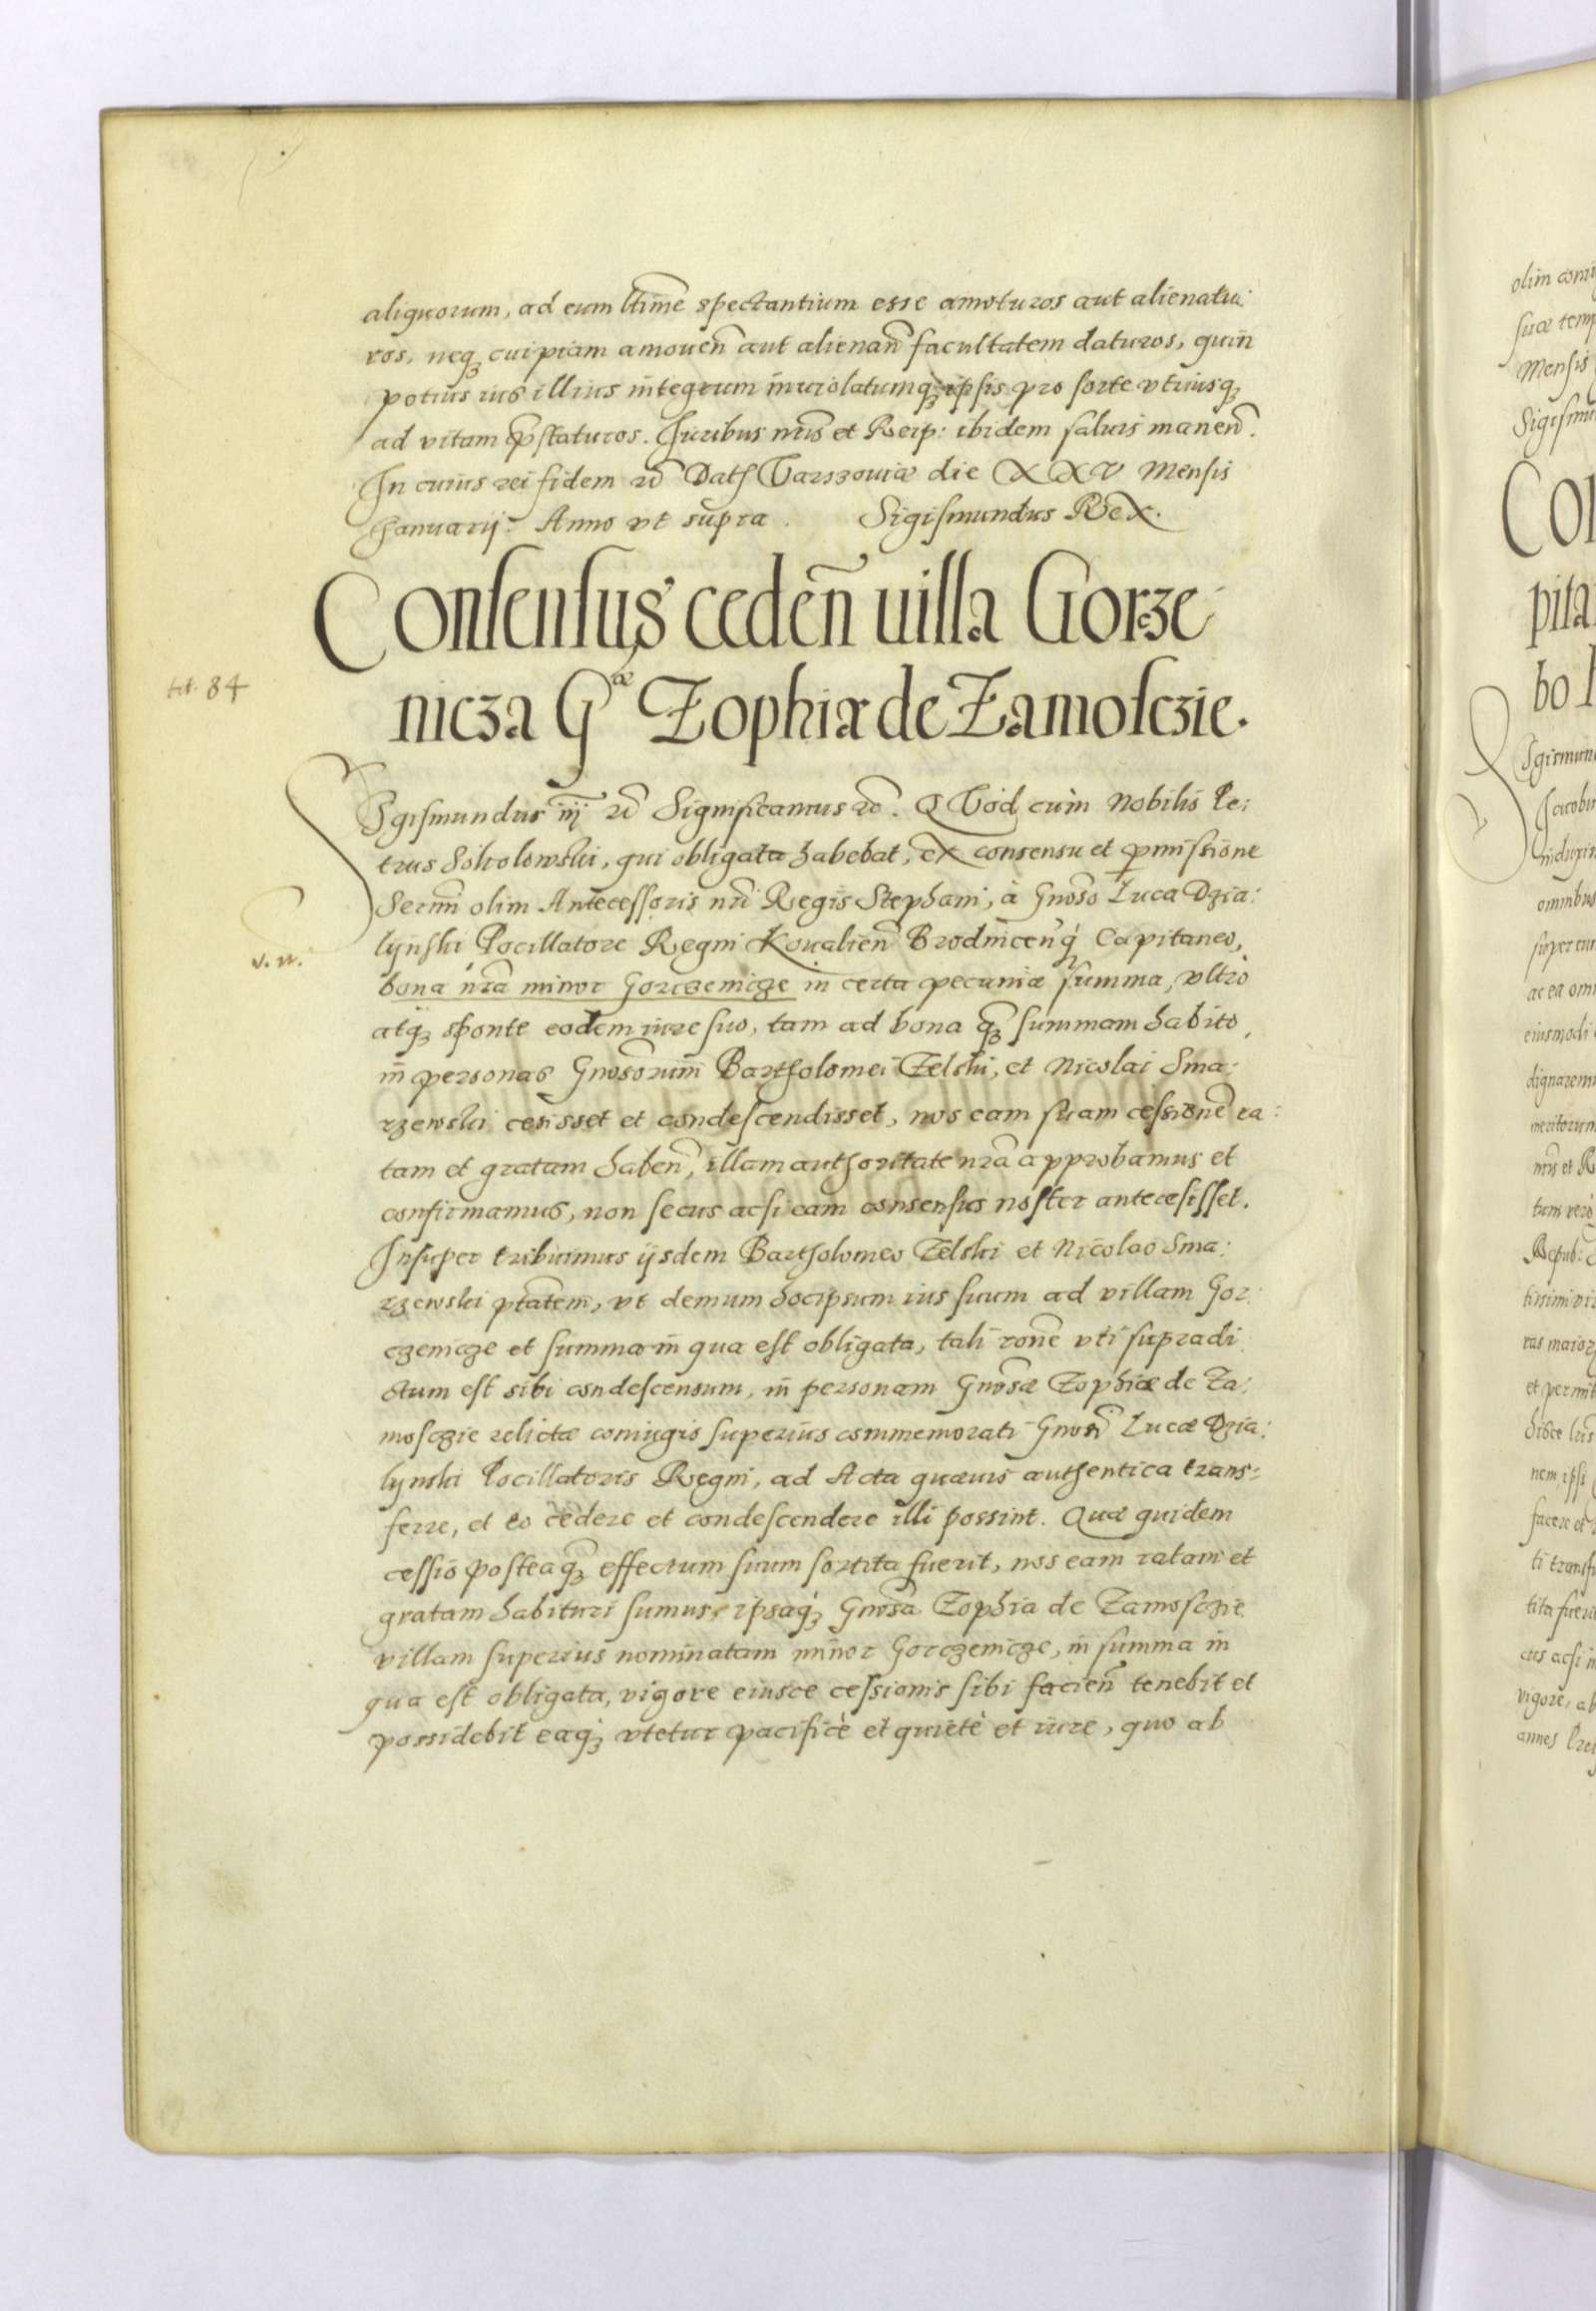 aliquorum, ad eum ltime spectantium esse amoturos aut alienatu:
ros, neq₃ cuipiam amouen̄ aut alienan̄ facultatem daturos, quin
potius ius illius integrum inuiolatumq₃ ipsis pro sorte vtriusq₃
ad vitam p̄staturos. Iuribus nris et Reip: ibidem saluis manen̄.
In cuius rei fidem etc̄ Dat Varszouiæ die XXV Mensis
Januarij. Anno vt supra. Sigismundus Rex.
Consensus ceden̄ uilla Gorze
nicza Gæ Zophiæ de Zamosczie.
tit. 84
Sigismundus iij etc̄ Significamus etc̄. QVod cum Nobilis Pe:
trus Sokolowski, qui obligata habebat, ex consensu et p̱missione
Sermi olim Antecessoris nri Regis Stephani, à Gnoso Luca Dzia:
lijnski Pocillatore Regni Koualien̄ Brodnicen̄q₃ Capitaneo,
v. n.
bona nra minor Gorczenicze in certa pecuniæ summa, vltrò
atq₃ sponte eodem iure suo, tam ad bona q̄₃ summam habito,
in personas Gnosorum Bartholomei Zelski, et Nicolai Sma:
rzewski cesisset et condescendisset, nos eam suam cessionē ra:
tam et gratam haben̄, illam authoritate nra approbamus et
confirmamus, non secus acsi eam consensus noster antecesisset.
Insuper tribuimus ijsdem Bartholomeo Zelski et Nicolao Sma:
rzewski ptatem, vt demum hocipsum ius suum ad villam Gor:
czenicze et summa in qua est obligata, tali rone vti supradi
ctum est sibi condescensum, in personam Gnosæ Zophiæ de Za:
mosczie relictæ coniugis superius commemorati Gnosi Lucæ Dzia:
lynski Pocillatoris Regni, ad Acta quæuis authentica trans:
ferre, et eo cedere et condescendere illi possint. Quæ quidem
cessio posteaq̄₃ effectum suum sortita fuerit, nos eam ratam et
gratam habituri sumus, ipsaq₃ Gnosa Zophia de Zamosczie
villam superius nominatam minor Gorczenicze, in summa in
qua est obligata, vigore eiusce cessionis sibi facien̄ tenebit et
possidebit eaq₃ vtetur pacificè et quietè et iure, quo ab